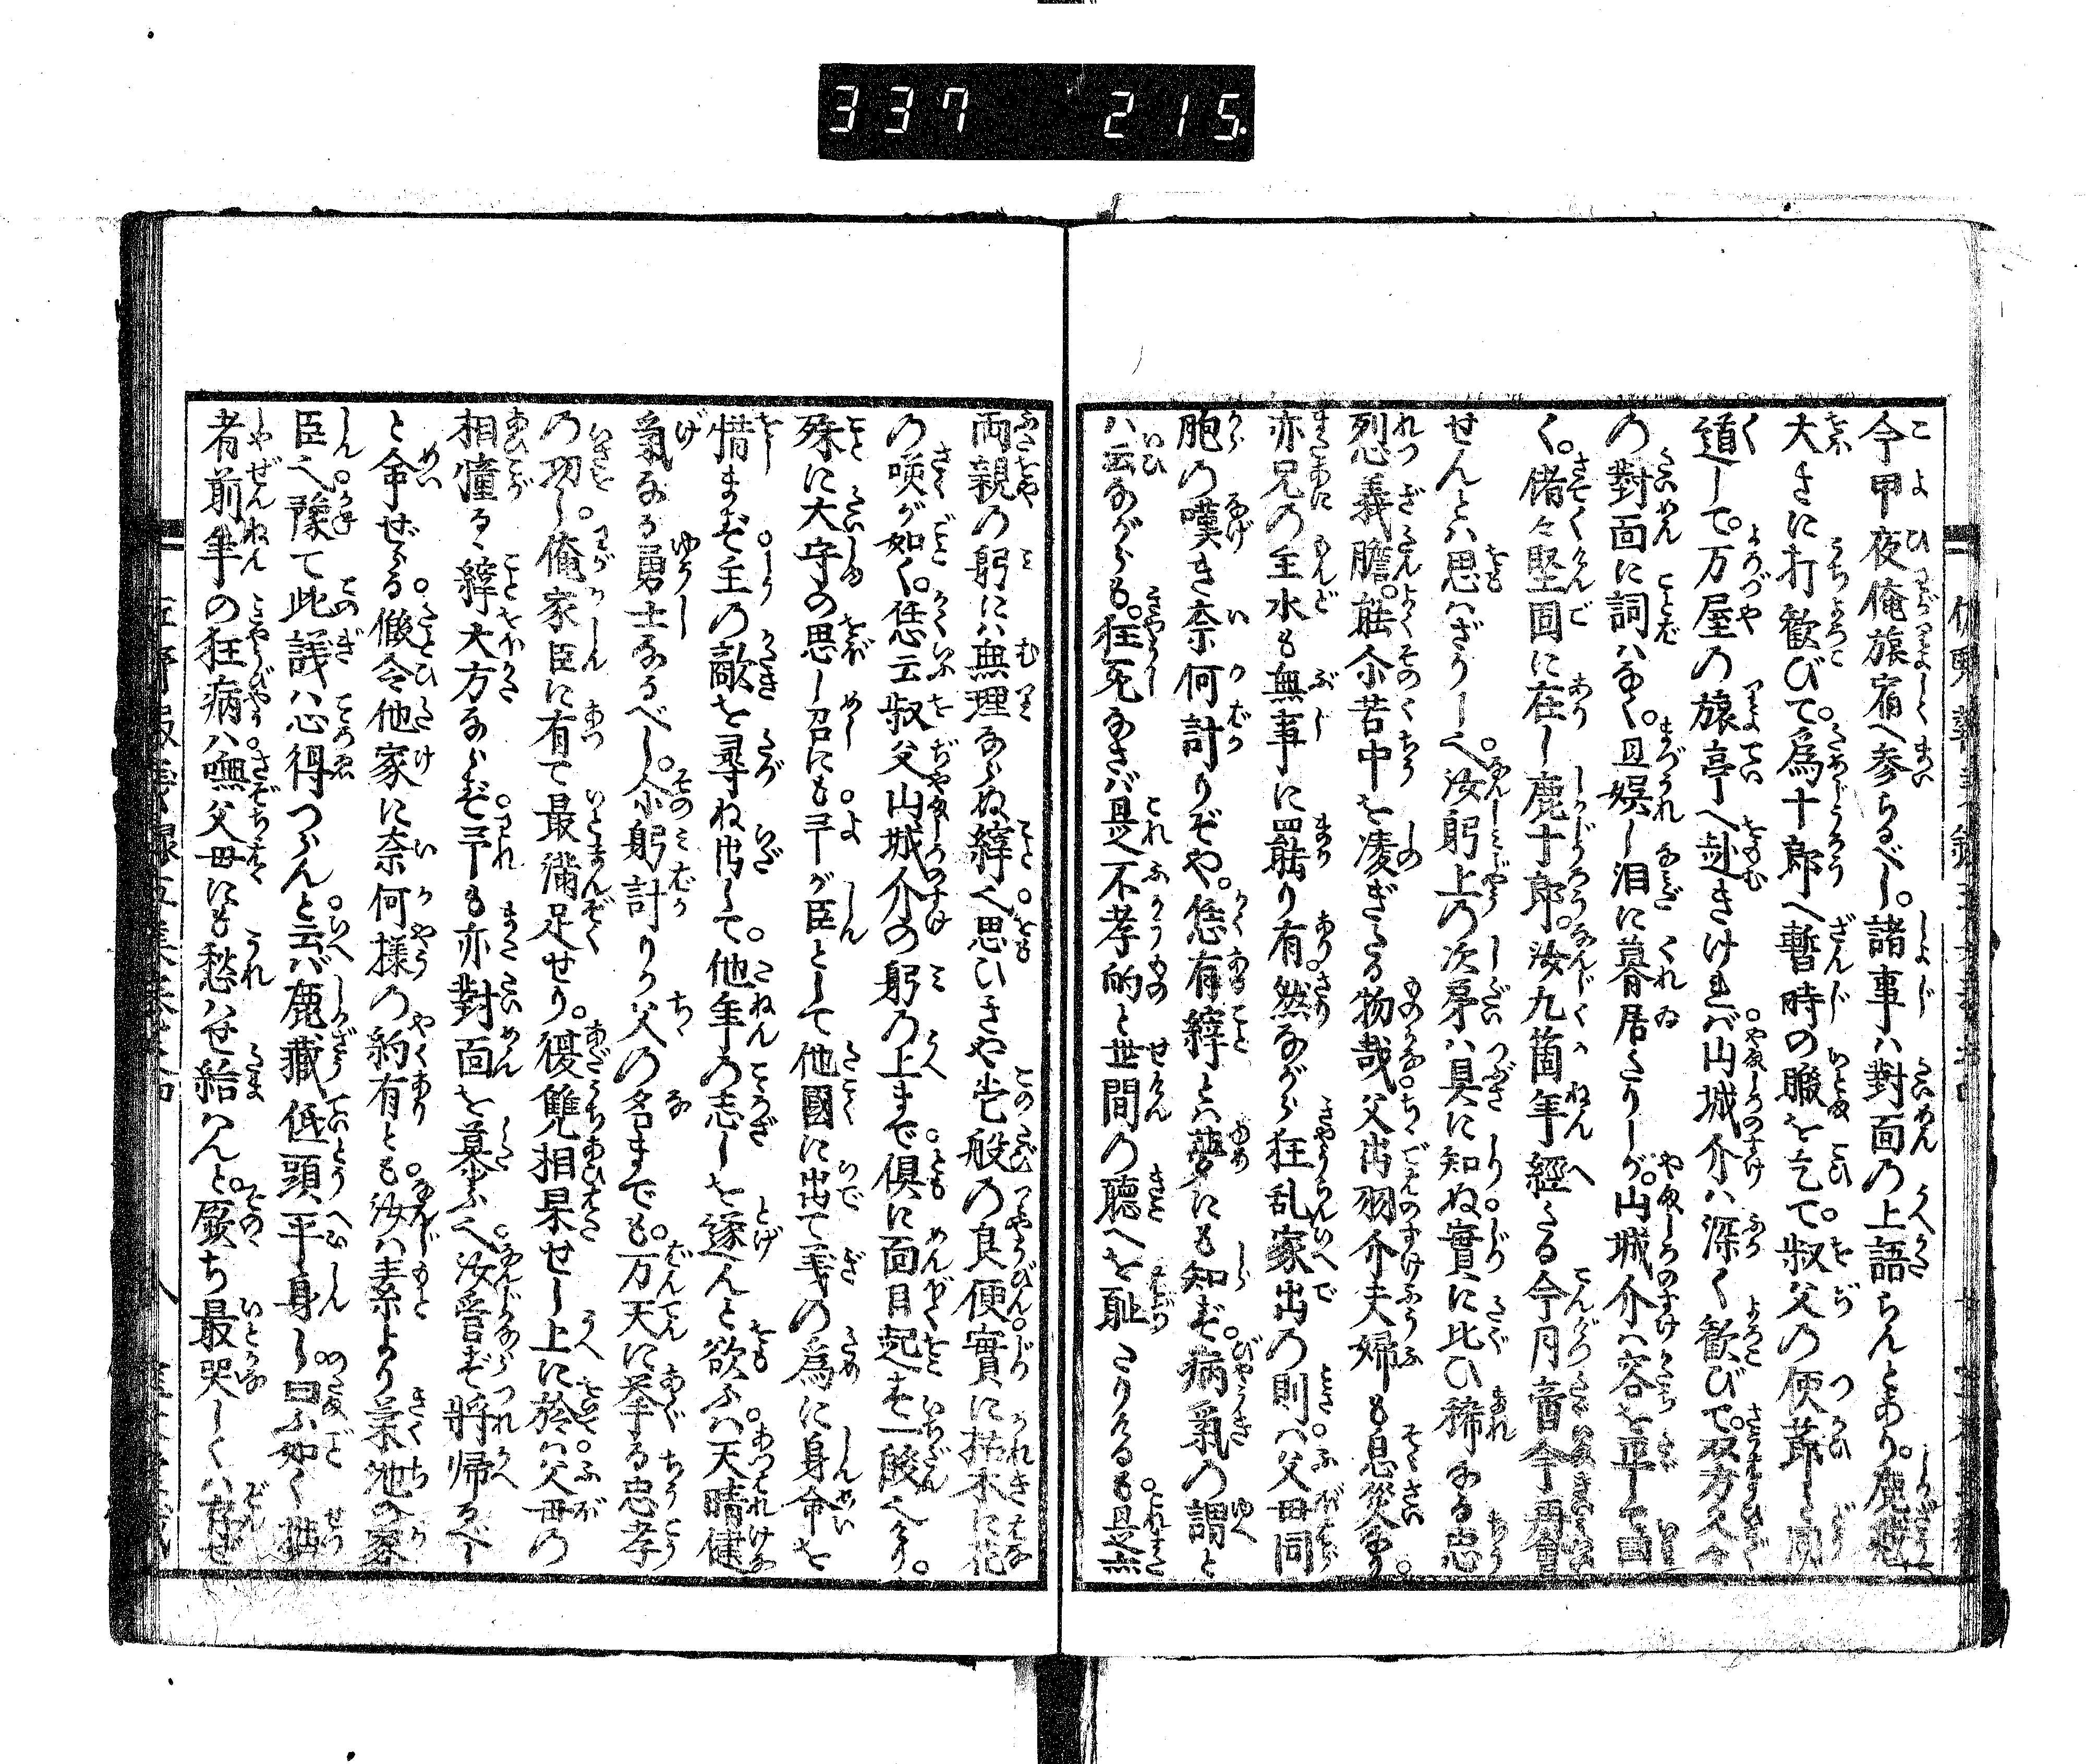 337 215.
今甲夜俺旅宿へ参らるべし。諸事ハ對面の上語らんとあり。鹿蔵
大きに打歓びて。為十郎へ暫時の暇を乞て。叔父の使節と同
道して。万屋の旅亭へ赴きけれバ。山城介ハ深く歓びて。双方久々
の對面に詞ハなく。且娯し泪に暮居たりしが。山城介ハ容を平して
く。偖々堅固に在し鹿十郎。汝九箇年經る今月今
せんとハ思ハざりし也。汝躬上の次第ハ具に知ぬ。實に比ひ稀なる忠
烈義膽。能尒苦中を凌ぎたる物哉。父出羽介夫婦も息災なり。
亦兄の主水も無事に罷り有。然ながら狂乱家出の則ハ。父母同
胞の嘆き奈何計りぞや。恁有縡とハ夢にも知ず。病氣の謂と
ハ云ながらも。狂死なさバ是不孝的と世間の聴へを耻たりけるも。是亦
両親の躬にハ無理ならぬ縡也。思ひきや此般の良便。實に枯木に花
の咲が如く。恁云叔父山城介の躬の上まで。倶に面目起す一段也けり。
殊に大守の思し召にも。予が臣として他國に出て。義の為に身命を
惜まず。主の敵を尋ね出して。他年の志しを遂んと欲ふハ。天晴健
氣なる勇士なるべし。尒躬計りか父の名までも。万天に挙る忠孝
の功し。俺家臣に有て最満足せり。復讐相果せし上に於ハ。父母の
相憧るゝ縡大方ならず。予も亦對面を慕ふ也。汝管ず將帰るべし
と命ぜらる。假令他家に奈何樣の約有とも。汝ハ素より菊池の家
臣也。豫て此議ハ心得つらんと云バ。鹿藏低頭平身し。曰ふ如く拙
者前年の狂病ハ。嘸父母にも愁ハせ給ハんと。厥ち最哭しくハ存ぜ